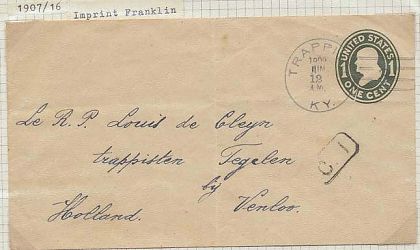 1907/16
Imprint Franklin
UNITED STATES
1 1
ONE CENT
TRAPPIST
JUN
12
A.M.
KY.
Le R. P. Louis de Cleyn
trappisten Tegelen
bij
Holland. Venloo.
C 1